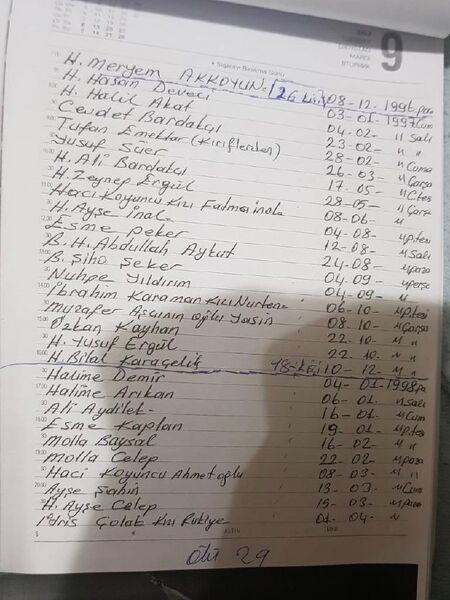 9
MARDI
• Sigarayı Bırakma Günü
H. Meryem AKKOYUN (26 kişi) 08-12-1996 paz
H. Hasan Deveci 03-01-1997 Cum
H. Halil Akat 04-02- " Salı
Cevdet Bardakçı 23-02- " "
Tufan Emektar (Kiriflerden) 28-02- " Cuma
Yusuf Süer 26-03- " Çarşa
H. Ali Bardakçı 17-05- " Ctes
H. Zeynep Ergül 28-05- " Çarşa
Hacı Koyuncu Kızı Fatma inal 08-06- "
H. Ayşe inal 04-08- " p.tesi
Esme peker 12-08- " Salı
B. H. Abdullah Aykut 24-08- " paza
B. Şıho şeker 04-09 " perşe
Nuhpe yıldırım 04-09 "
İbrahim Karaman Kızı Nurten 06-10 " p.tesi
Muzafer Aşçının oğlu Yasin 08-10 " Çarşa
Özkan Kayhan 22-10- " "
H. Yusuf Ergül 22-10- " "
H. Bilal Karaçelik 18-kişi 10-12- " "
Halime Demir 04-01-1998 pa
Halime Arıkan 06-01 " Salı
Ali Aydilek 16-01- " Cum
Esme Kaplan 19-01- " p.tes
Molla Baysal 16-02- " "
Molla Celep 22-02- " paza
Hacı Koyuncu Ahmet oğlu 08-03- " "
Ayşe Şahin 13-03- " Cum
H. Ayşe Celep 15-03- " paza
İdris Çolak Kızı Rukiye 01-04- "
Ölü 29